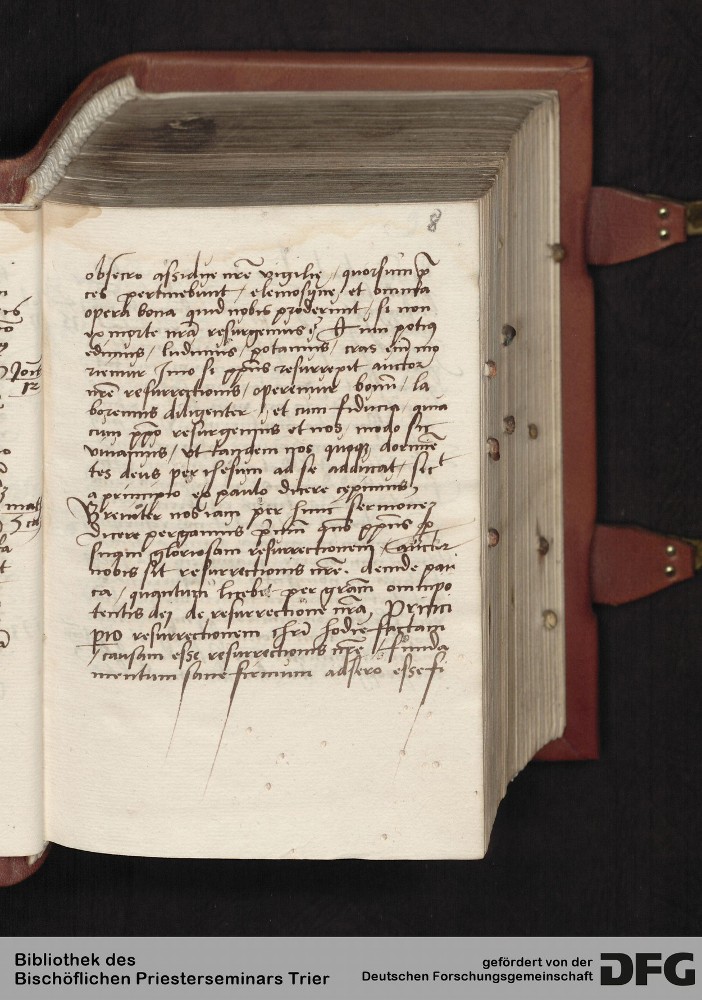 8
obsecro assidue nrē vigilię, quorsum p̄
ces pertinebunt, elemosynę et omnia
opera bona quid nobis proderunt, si non
ex morte nrā resurgemus? Et nn̄ potiꝯ
edimus, ludimus, potamus, cras em̄ mo
riemur Imo si xp̄us resurrexit auctor
nrē resurrectionis, operemur bonū, la
boremus diligenter, et cum fiducia, quia
cum xp̄o resurgemus et nos, modo sic
viuamus, vt tandem nos quoqꝫ dormiē
tes deus per ihesum ad se adducat, sict
a principio ex paulo dicere cępimus,
Breuiter nos iam per hunc sermonem
dicere pergamus prīmū quō xp̄us p
suam gloriosam resurrectionem, auctor
nobis sit resurrectionis nrē. deinde pau
ca, quantum licebit per grām omnipo
tentis dei de resurrectione nrā, Princi
pio resurrectionem chrī hodie factam
causam esse resurrectionis nrē, funda
mentum sane firmum adsero esse fi
Joh̄
12
mat
5 ca
Bibliothek des
Bischöflichen Priesterseminars Trier
gefördert von der
Deutschen Forschungsgemeinschaft
DFG